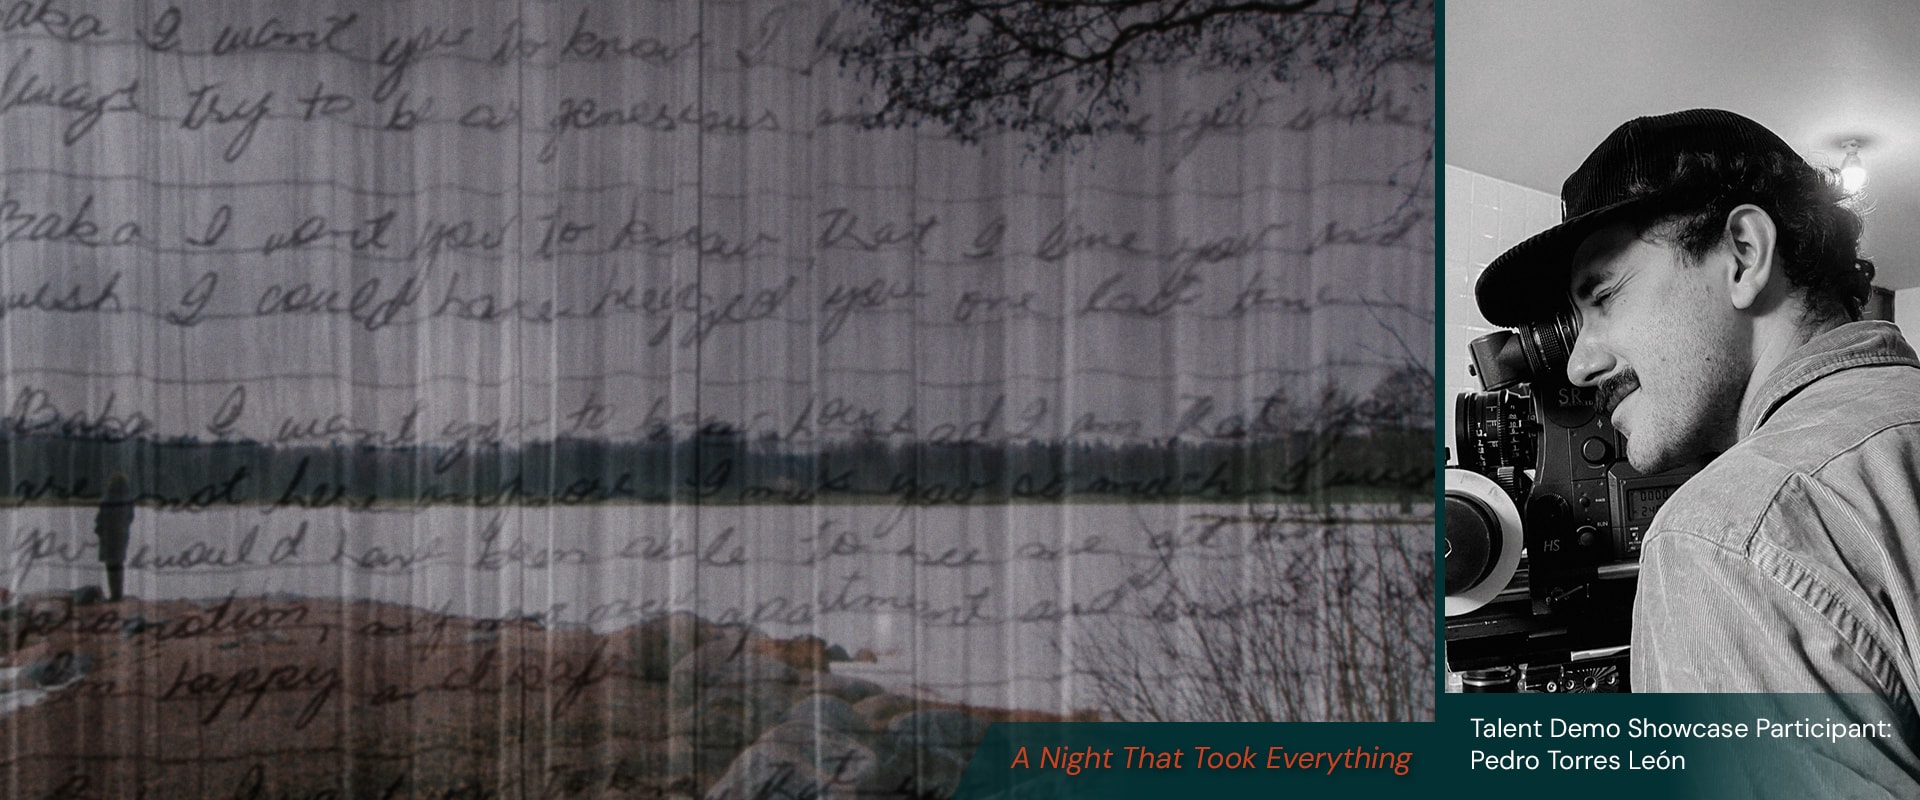 Baka I want you to know I
always try to be as genesious as you were,
Baka I want you to know that I love you and
wish I could have hugged you one last time
Baka I want you to know
are not here anymore I miss you so much I wish
you would have been able to see me get
promotion, my own apartment and know
Im happy and safe
A Night That Took Everything
SR
HS
Talent Demo Showcase Participant:
Pedro Torres León